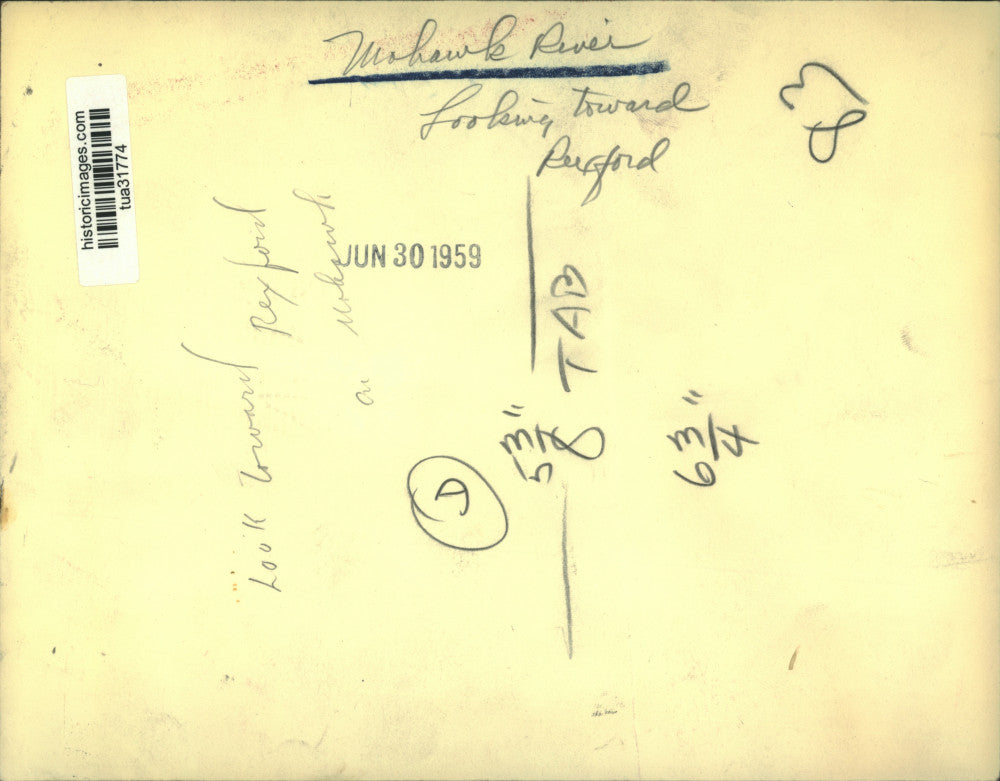 Mohawk River
Looking toward
Rexford
historicimages.com
tua31774
JUN 30 1959
Look toward Rexford
on Mohawk
TAB
5 3/8"
6 3/4
"
D